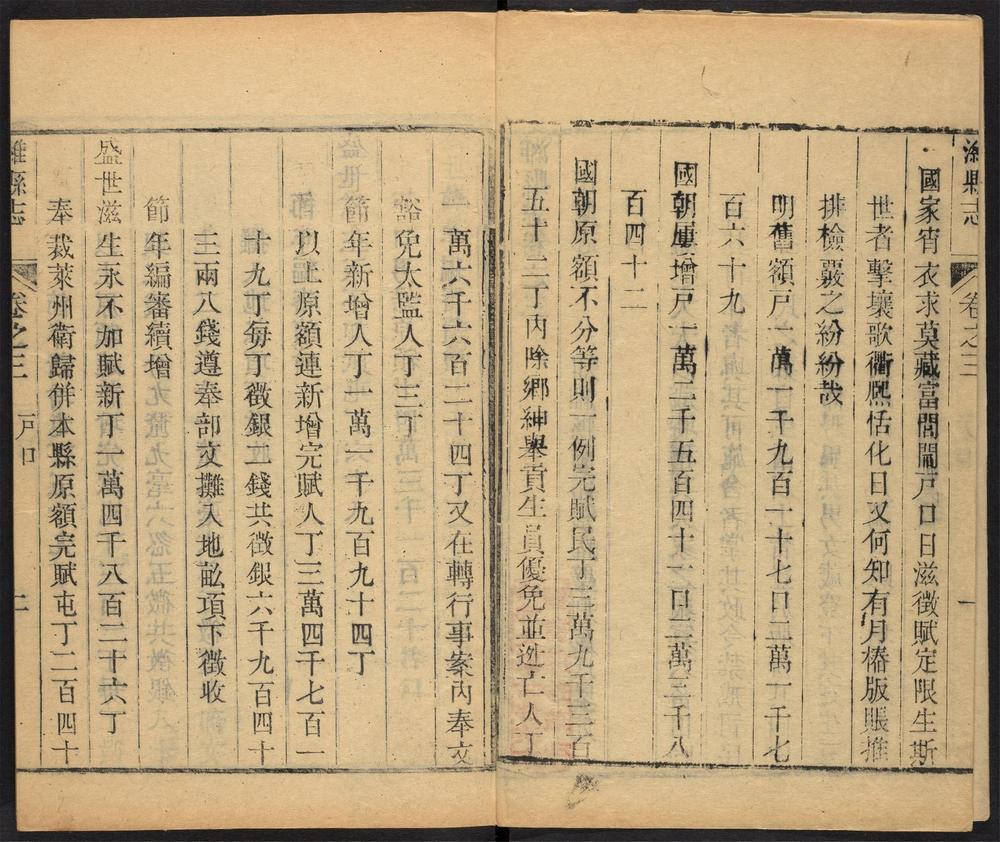 濰縣志
卷之三
一
國家宵衣求莫藏富閭閻戸口日滋徵賦定限生斯
世者擊壤歌衢熙恬化日又何知有月樁版賬推
排檢覈之紛紛哉
明舊額戸一萬一千九百一十七口二萬一千七
百六十九
國朝屢增戸一萬二千五百四十一口二萬三千八
百四十二
國朝原額不分等則一例完賦民丁二萬九千三百
五十二丁內除鄉紳舉貢生員優免並逃亡人丁
萬六千六百二十四丁又在轉行事案內奉文
豁免太監人丁三丁
節年新增人丁一萬一千九百九十四丁
以上原額連新增完賦人丁三萬四千七百一
十九丁每丁徵銀二錢共徵銀六千九百四十
三兩八錢遵奉部文攤入地畝項下徵收
節年編審續增
盛世滋生永不加賦新丁一萬四千八百二十六丁
奉裁萊州衛歸併本縣原額完賦屯丁二百四十
濰縣志
卷之三
戸口
二